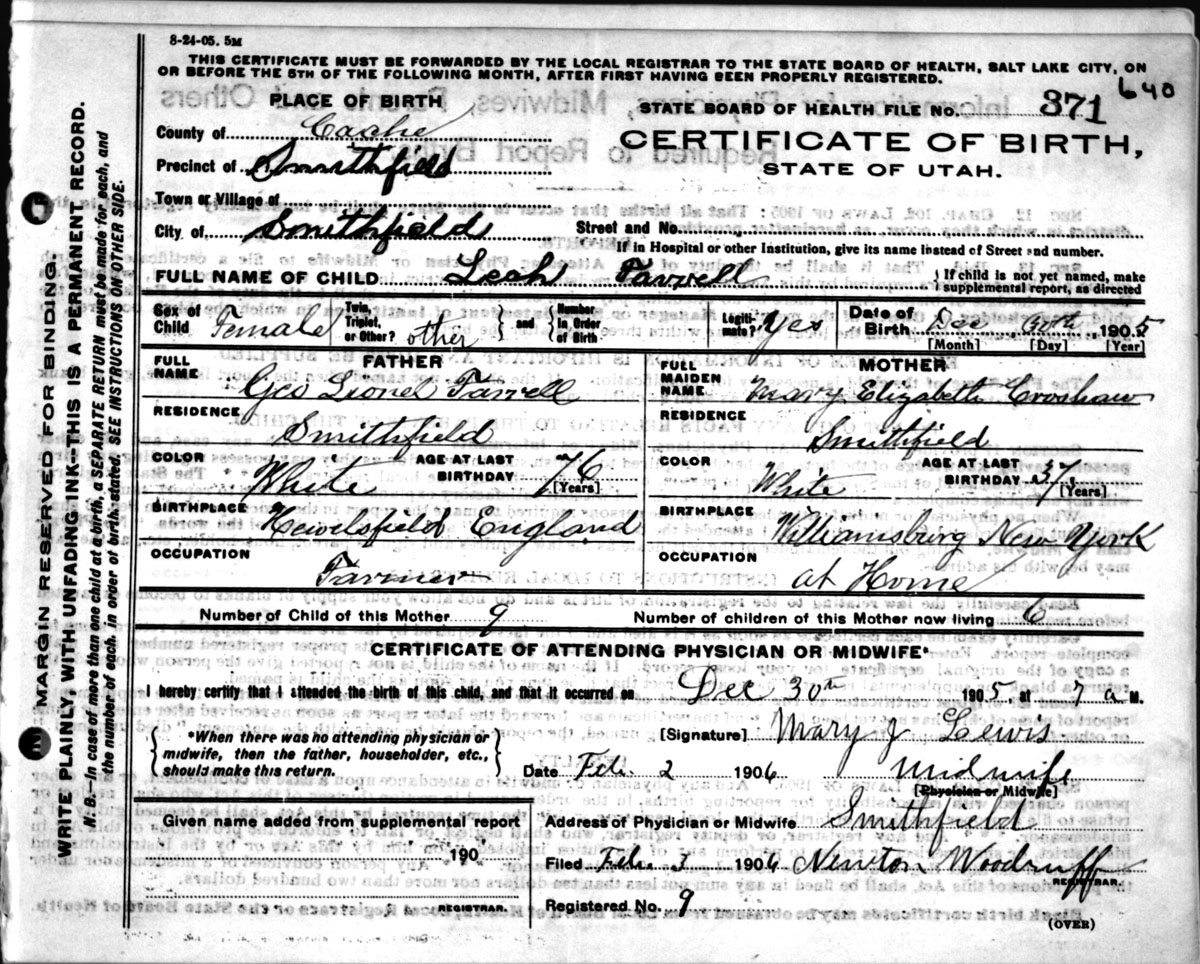 8-24-05. 5M
THIS CERTIFICATE MUST BE FORWARDED BY THE LOCAL REGISTRAR TO THE STATE BOARD OF HEALTH, SALT LAKE CITY, ON
OR BEFORE THE 5TH OF THE FOLLOWING MONTH, AFTER FIRST HAVING BEEN PROPERLY REGISTERED.
640
PLACE OF BIRTH
STATE BOARD OF HEALTH FILE NO. 371
County of Cache
CERTIFICATE OF BIRTH,
Precinct of Smithfield
STATE OF UTAH.
Town or Village of
City of Smithfield Street and No.
If in Hospital or other Institution, give its name instead of Street and number.
FULL NAME OF CHILD Leah Farrell } If child is not yet named, make supplemental report, as directed
Sex of Child Female Twin, Triplet, or Other? other } and { Number in Order of Birth Legiti-mate? Yes Date of Birth Dec 30th 1905
[Month] [Day] [Year]
FATHER
FULL NAME Geo Lionel Farrell
RESIDENCE
Smithfield
COLOR White AGE AT LAST BIRTHDAY 76 [Years]
BIRTHPLACE Hewelsfield England
OCCUPATION
Farmer
MOTHER
FULL MAIDEN NAME Mary Elizabeth Croshaw
RESIDENCE
Smithfield
COLOR White AGE AT LAST BIRTHDAY 37 [Years]
BIRTHPLACE Williamsburg New York
OCCUPATION
at Home
Number of Child of this Mother 9 Number of children of this Mother now living 6
CERTIFICATE OF ATTENDING PHYSICIAN OR MIDWIFE*
I hereby certify that I attended the birth of this child, and that it occurred on Dec 30th 1905 at 7 a M.
{ *When there was no attending physician or midwife, then the father, householder, etc., should make this return. }
[Signature] Mary J Lewis
Date Feb. 2 1906 Midwife
[Physician or Midwife]
Given name added from supplemental report
190
REGISTRAR.
Address of Physician or Midwife Smithfield
Filed Feb. 3 1906 Newton Woodruff
REGISTRAR.
Registered No. 9
(OVER)
MARGIN RESERVED FOR BINDING.
WRITE PLAINLY WITH UNFADING INK--THIS IS A PERMANENT RECORD.
N. B.--In case of more than one child at a birth, a SEPARATE RETURN must be made for each, and
the number of each, in order of birth, stated. SEE INSTRUCTIONS ON OTHER SIDE.